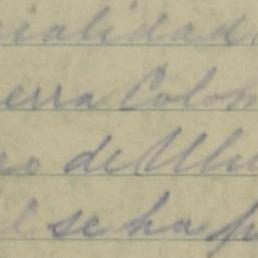 cialidad
erra Colom
ro de Ulu
l se ha p